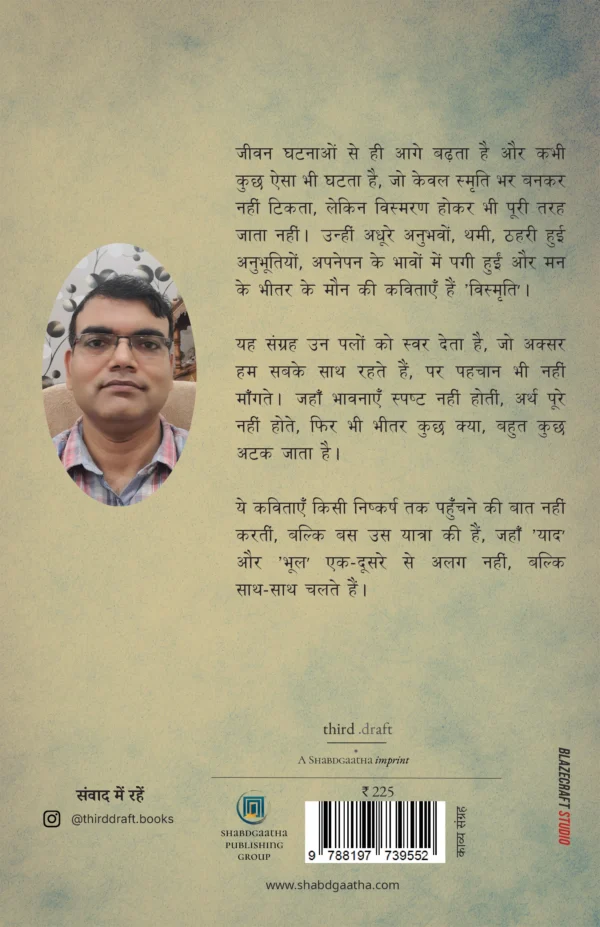 जीवन घटनाओं से ही आगे बढ़ता है और कभी
कुछ ऐसा भी घटता है, जो केवल स्मृति भर बनकर
नहीं टिकता, लेकिन विस्मरण होकर भी पूरी तरह
जाता नहीं। उन्हीं अधूरे अनुभवों, थमी, ठहरी हुई
अनुभूतियों, अपनेपन के भावों में पगी हुईं और मन
के भीतर के मौन की कविताएँ हैं 'विस्मृति'।
यह संग्रह उन पलों को स्वर देता है, जो अक्सर
हम सबके साथ रहते हैं, पर पहचान भी नहीं
माँगते। जहाँ भावनाएँ स्पष्ट नहीं होतीं, अर्थ पूरे
नहीं होते, फिर भी भीतर कुछ क्या, बहुत कुछ
अटक जाता है।
ये कविताएँ किसी निष्कर्ष तक पहुँचने की बात नहीं
करतीं, बल्कि बस उस यात्रा की हैं, जहाँ 'याद'
और 'भूल' एक-दूसरे से अलग नहीं, बल्कि
साथ-साथ चलते हैं।
third .draft
A SHABDGAATHA imprint
संवाद में रहें
@thirddraft.books
SHABDGAATHA
PUBLISHING
GROUP
₹ 225
9 788197 739552
काव्य संग्रह
BLAZECRAFT STUDIO
www.shabdgaatha.com